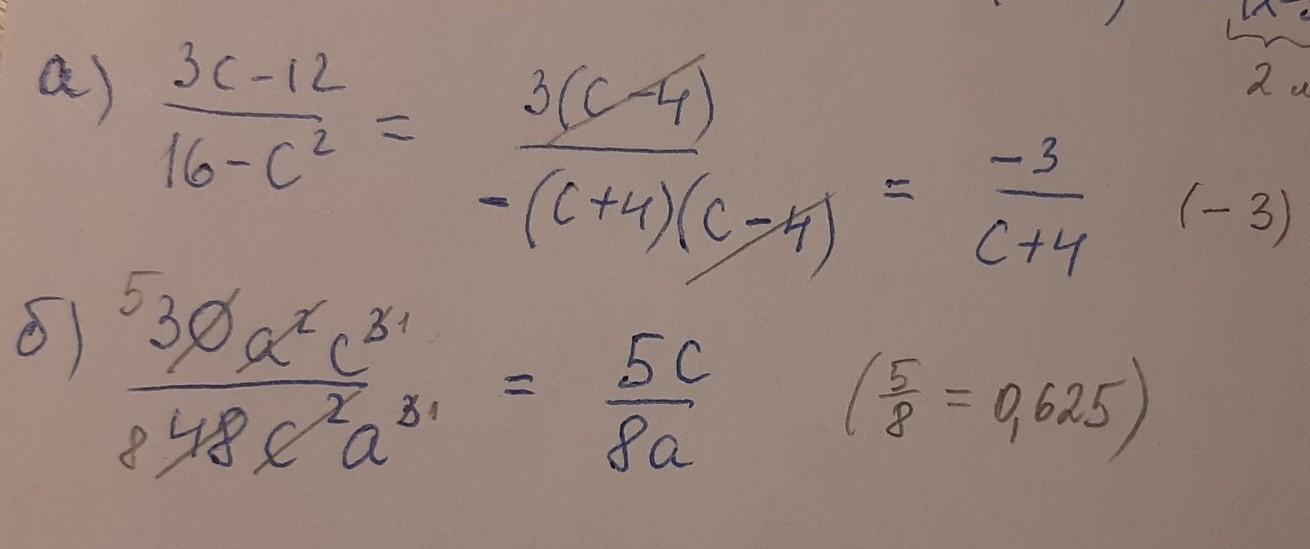 а) (3c-12)/(16-c²) = 3(c-4)/(-(c+4)(c-4)) = -3/(c+4) (-3)
б) 5 30a²c³ 1/(8 48c²a³ 1) = 5c/(8a) (5/8 = 0,625)
2